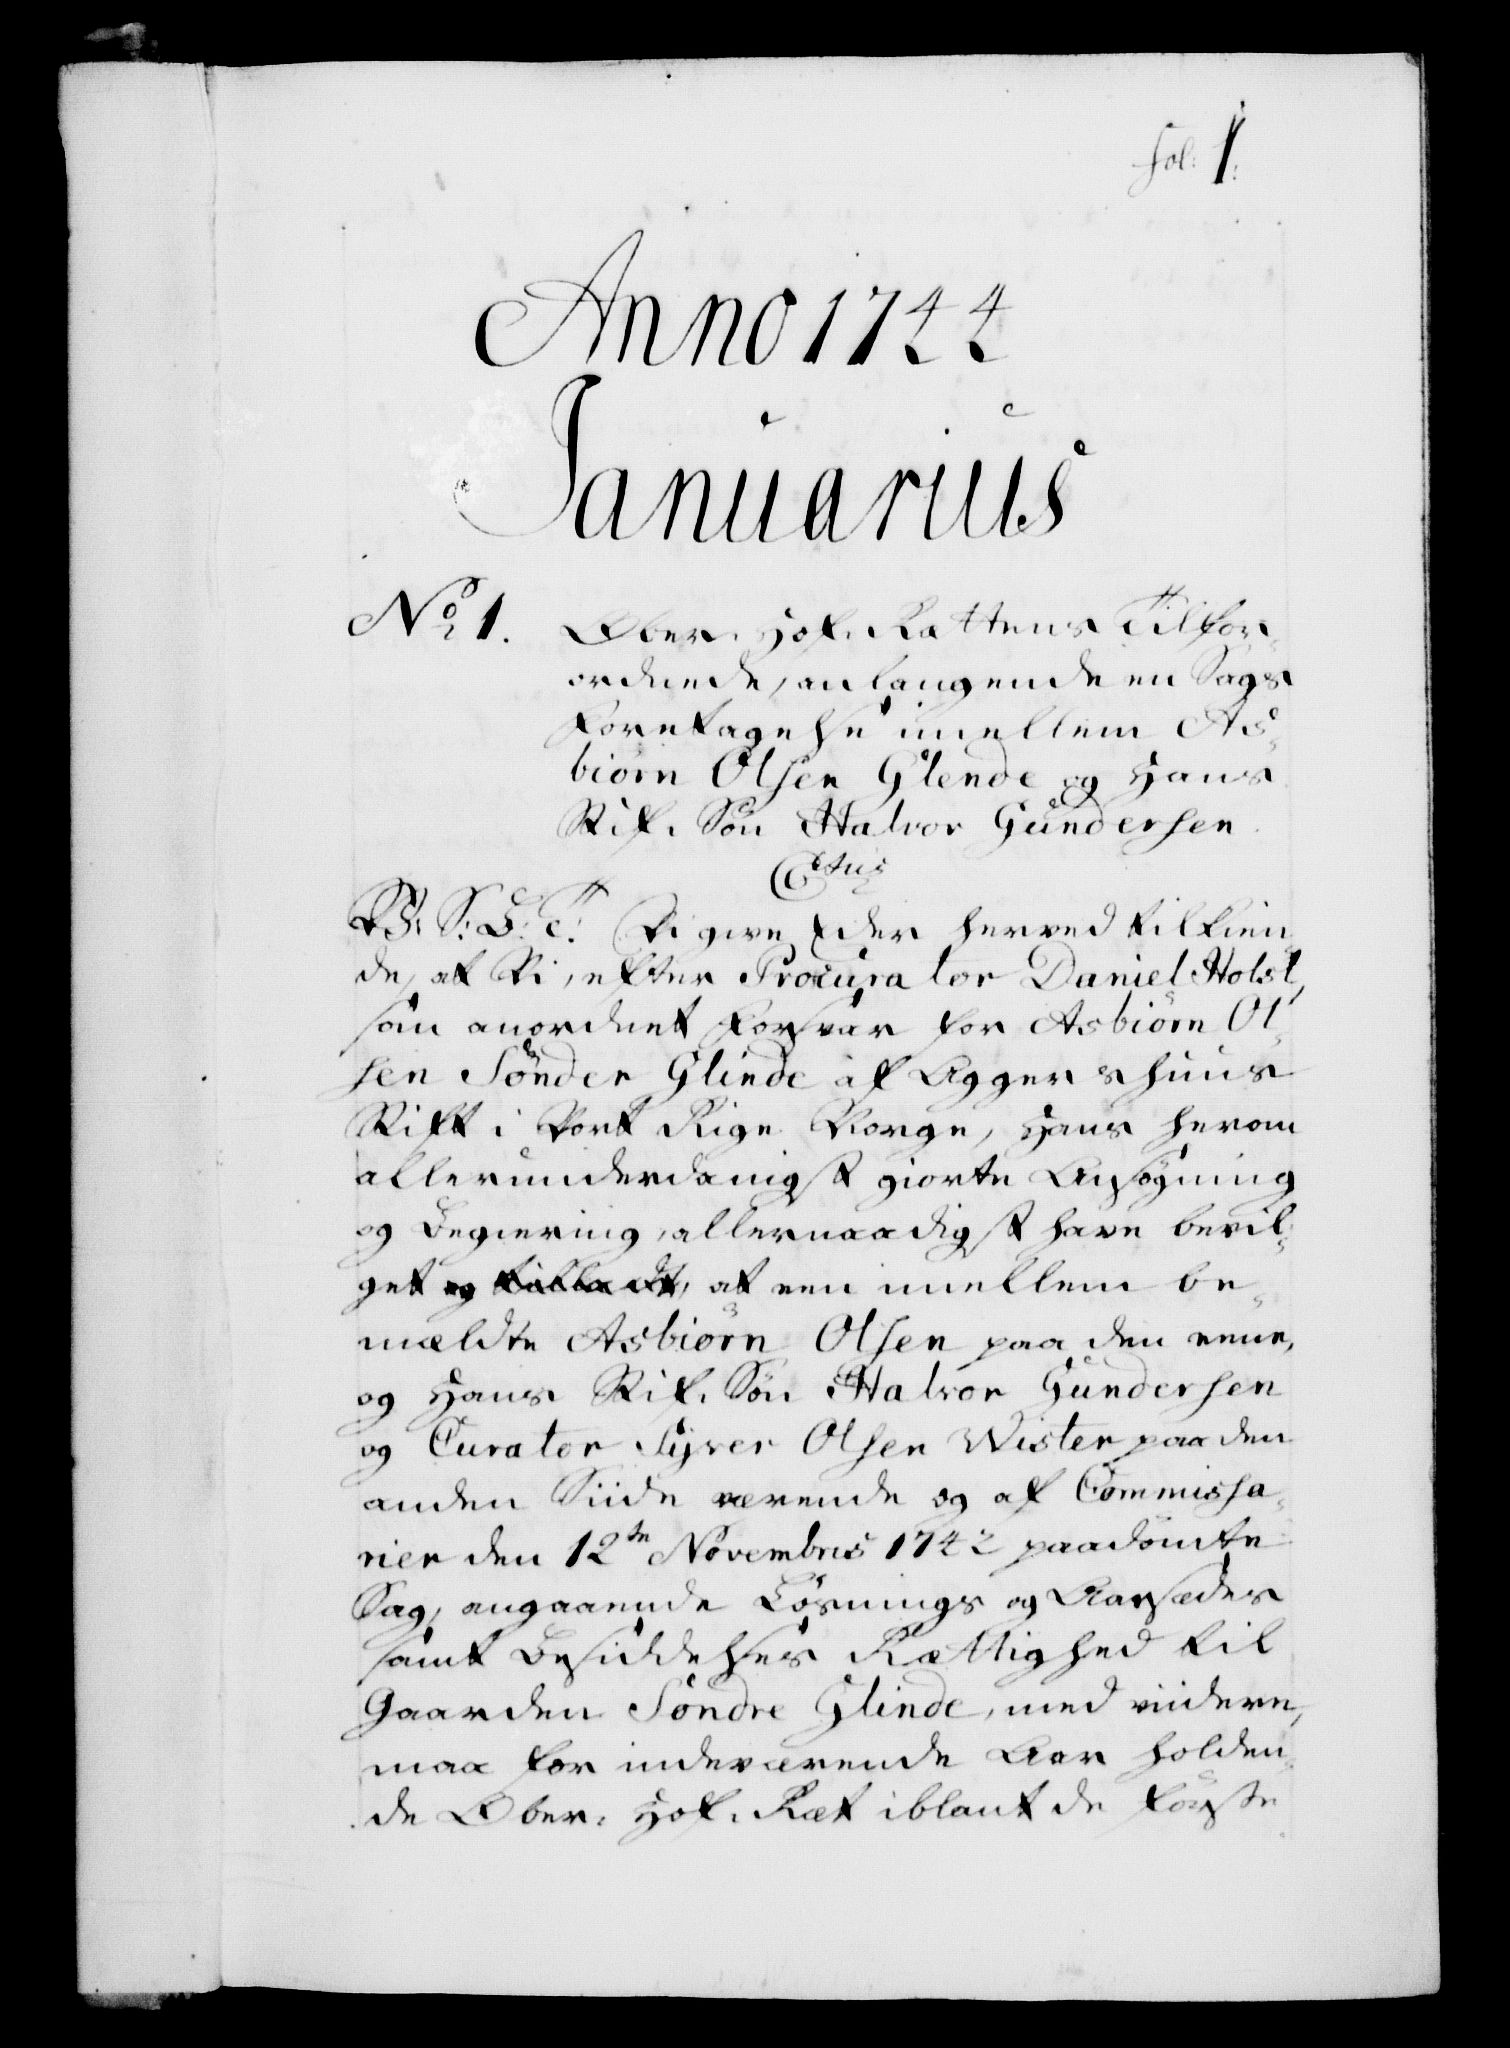 fol: 1.
Anno 1744
Januarius
No 1. Ober-Hof-Rættens Tilfor-
ordnede, anlangende en Sags
foretagelse imellem As-
biørn Olsen Glende og Hans
Stif-Søn Halvor Gundersen
C 6tus
V: S: B: T: Vi give Eder herved tilkien-
de, at Vi, efter Procurator Daniel Holst,
som anordnet forsvar for Asbiørn Ol-
sen Sönder Glinde af Aggershuus
Stift i Vort Rige Norge, Hans herom
allerunderdanigst giorte Ansøgning
og Begiering, allernaadigst have bevil-
get og tilladt, at een imellem be-
mældte Asbiørn Olsen paa den eene,
og Hans Stif-Søn Halvor Gundersen
og Curator Syver Olsen Wister paa den
anden Siide værende og af Commissa-
rier den 12te Novembris 1742 paadømte
Sag, angaaende Løsnings og Aarsædes
samt Besiddelses Rættighed til
Gaarden Söndre Glinde, med viidere,
maa for indeværende Aar holden-
de Ober-Hof-Ræt iblant de første